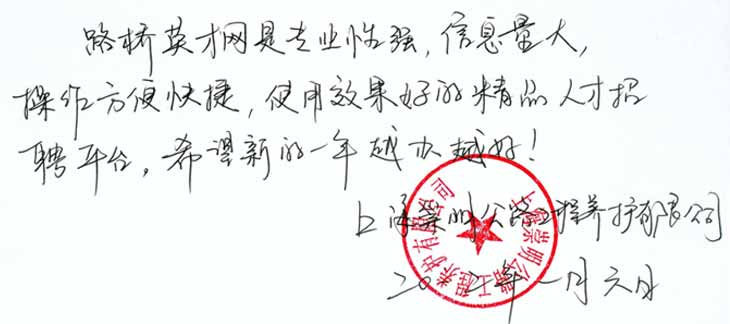 路桥英才网是专业性强，信息量大，
操作方便快捷，使用效果好的精品人才招
聘平台，希望新的一年越办越好！
上海崇明公路工程养护有限公司
二〇一二年一月六日
上海崇明公路工程养护有限公司